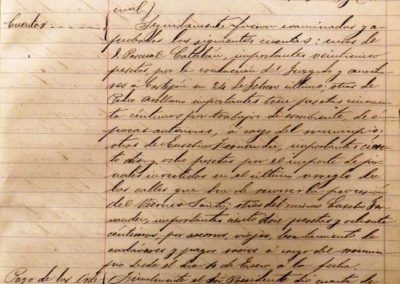 Cuentas
Seguidamente fueron examinadas y a-
probadas las siguientes cuentas: unas de
D. Pascual Catalán, importantes veintiuna
pesetas por la conducción del Juzgado y
en 24 de Febrero último: otras de
Pedro Arellano importantes tres pesetas cincuen-
ta céntimos por trabajos de de é-
pocas anteriores, a cargo del municipio:
otras de Eusebio Fernández, importantes cien-
to diez y ocho pesetas por el importe de
invertidos en el último arreglo de
las calles que ha de recorrer la procesión
del Viernes Santo; otras del mismo Eusebio Fer-
nández, importantes ciento dos pesetas y ochenta
céntimos, por socorros, viajes,
cadáveres y pagos varios a cargo del muni-
cipio desde el día 1º de Enero a la fecha.
Pago de las
Igualmente el Sr. Presidente dio cuenta de